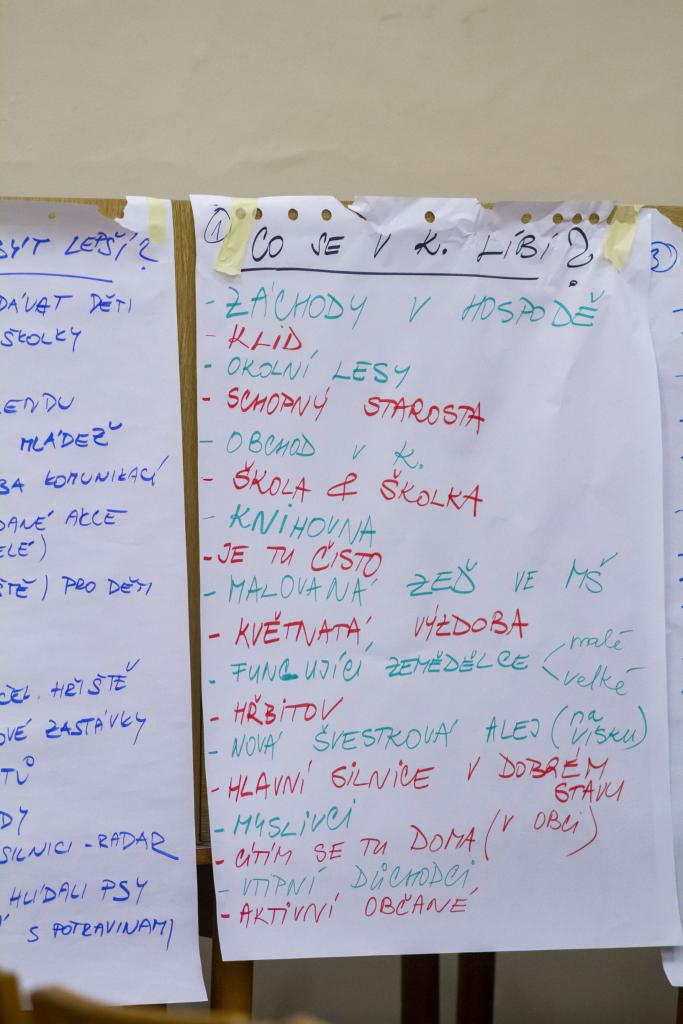 BÝT LEPŠÍ?
DÁVAT DĚTI
ŠKOLKY
MLÁDEŽ
KOMUNIKACÍ
AKCE
PRO DĚTI
HŘIŠTĚ
ZASTÁVKY
SILNICI - RADAR
HLÍDALI PSY
S POTRAVINAMI
① CO SE V K. LÍBÍ?
- ZÁCHODY V HOSPODĚ
- KLID
- OKOLNÍ LESY
- SCHOPNÝ STAROSTA
- OBCHOD V K.
- ŠKOLA & ŠKOLKA
- KNIHOVNA
- JE TU ČISTO
- MALOVANÁ ZEĎ VE MŠ
- KVĚTNATÁ VÝZDOBA
- FUNGUJÍCÍ ZEMĚDĚLCE < malé
velké
- HŘBITOV
- NOVÁ ŠVESTKOVÁ ALEJ (na
VÍŠKU)
- HLAVNÍ SILNICE V DOBRÉM
STAVU
- MYSLIVCI
- CÍTÍM SE TU DOMA (V OBCI)
- VTIPNÍ DŮCHODCI
- AKTIVNÍ OBČANÉ
③